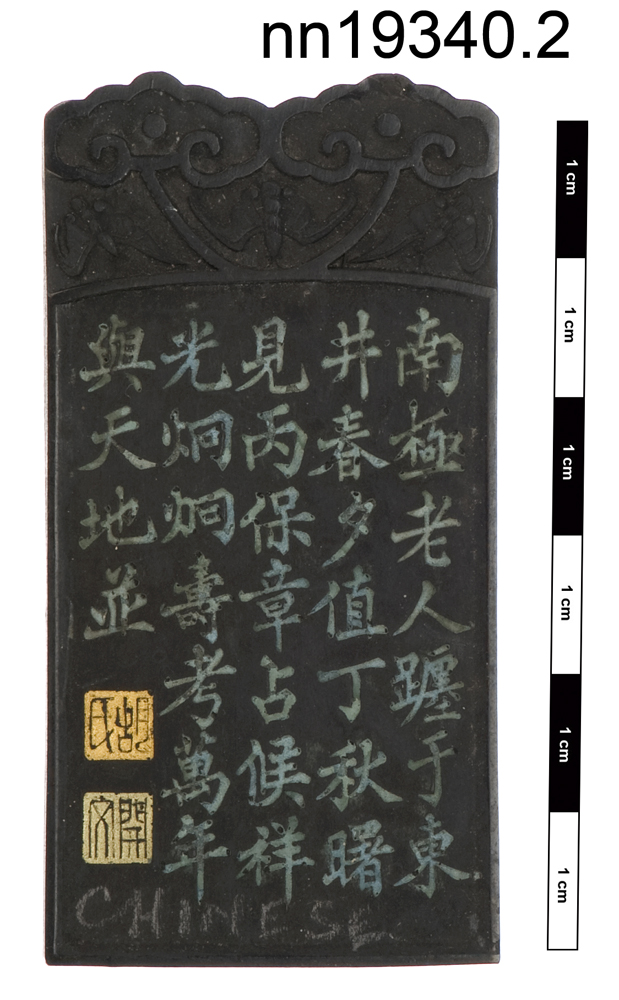 nn19340.2
南極老人躔于東
井春夕值丁秋曙
見丙保章占候祥
光炯炯壽考萬年
與天地並
胡氏
開文
CHINESE
1 cm
1 cm
1 cm
1 cm
1 cm
1 cm